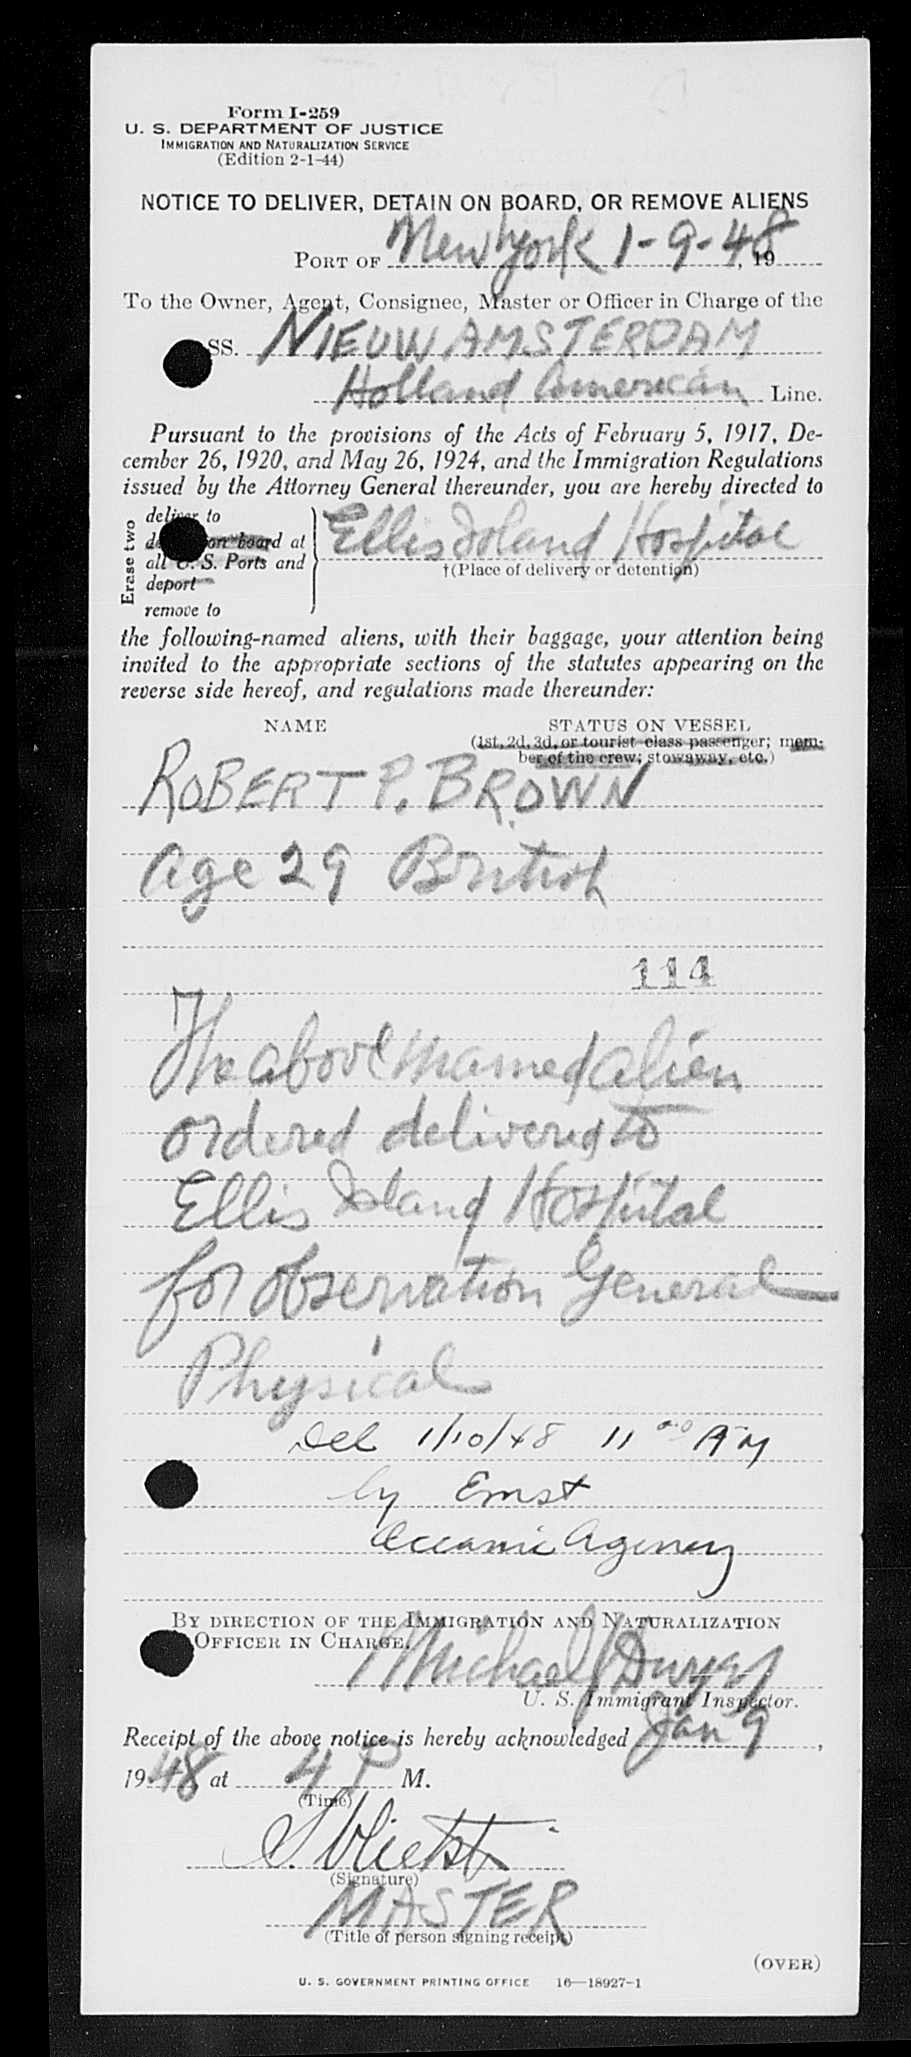 Form I-259
U. S. DEPARTMENT OF JUSTICE
IMMIGRATION AND NATURALIZATION SERVICE
(Edition 2-1-44)
NOTICE TO DELIVER, DETAIN ON BOARD, OR REMOVE ALIENS
PORT OF New York 1-9-48, 19
To the Owner, Agent, Consignee, Master or Officer in Charge of the
SS. NIEUW AMSTERDAM
Holland American Line.
Pursuant to the provisions of the Acts of February 5, 1917, De-
cember 26, 1920, and May 26, 1924, and the Immigration Regulations
issued by the Attorney General thereunder, you are hereby directed to
Erase two
deliver to
on board at
all U. S. Ports and
deport
remove to
Ellis Island Hospital
†(Place of delivery or detention)
the following-named aliens, with their baggage, your attention being
invited to the appropriate sections of the statutes appearing on the
reverse side hereof, and regulations made thereunder:
NAME STATUS ON VESSEL
(1st, 2d, 3d, or tourist class passenger; mem-
ber of the crew; stowaway, etc.)
ROBERT P. BROWN
age 29 British
114
The above named alien
ordered delivered to
Ellis Island Hospital
for observation General
Physical
Del 1/10/48 11 00 AM
by Ernst
Oceanic Agency
BY DIRECTION OF THE IMMIGRATION AND NATURALIZATION
OFFICER IN CHARGE.
Michael J Dwyer
U. S. Immigrant Inspector.
Receipt of the above notice is hereby acknowledged Jan 9,
1948 at 4 P M.
(Time)
(Signature)
MASTER
(Title of person signing receipt)
(OVER)
U. S. GOVERNMENT PRINTING OFFICE 16—18927-1